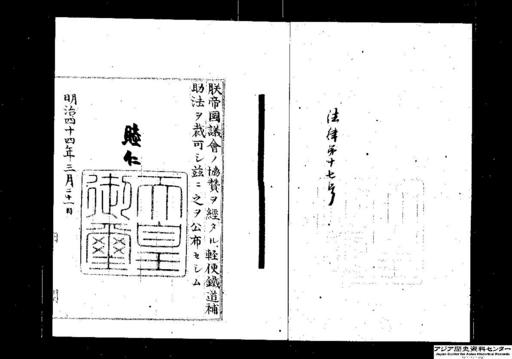 法律第十七号
朕帝国議會ノ協賛ヲ經タル軽便鐵道補
助法ヲ裁可シ茲ニ之ヲ公布セシム
睦仁
天皇
御璽
明治四十四年三月二十一日
アジア歴史資料センター
Japan Center for Asian Historical Records